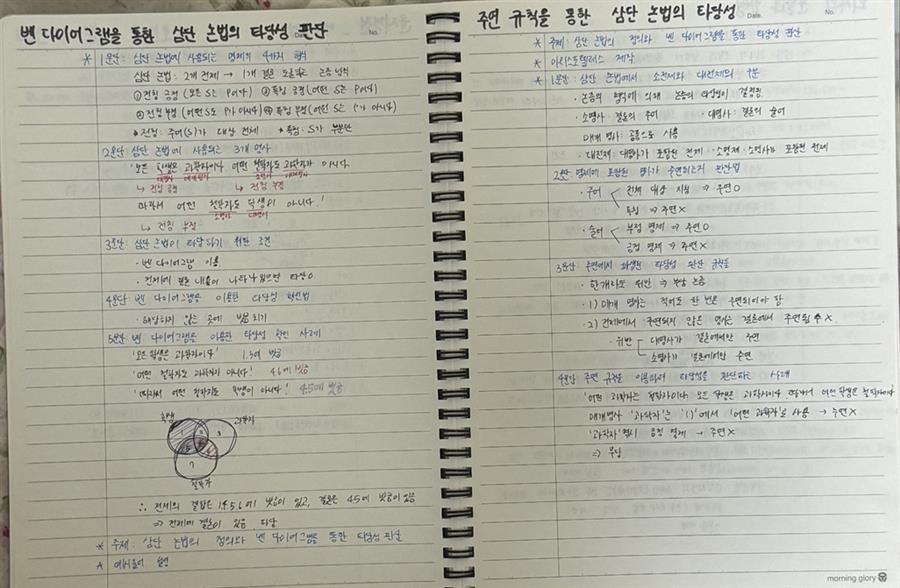 벤 다이어그램을 통한 삼단 논법의 타당성 판단
* 1문단: 삼단 논법에 사용되는 명제의 4가지 형식
삼단 논법: 2개 전제 → 1개 결론 도출하는 논증 형식
① 전칭 긍정 (모든 S는 P이다) ② 특칭 긍정 (어떤 S는 P이다)
전칭 부정 (어떤 S도 P가 아니다) ④ 특칭 부정 (어떤 S는 P가 아니다)
* 전칭: 주어(S)가 대상 전체 * 특칭: S가 부분만
2문단 삼단 논법에 사용되는 3개 명사
'모든 학생은 과학자이다 어떤 철학자도 과학자가 아니다.
↳ 전칭 긍정 ↳ 전칭 부정
따라서 어떤 철학자도 학생이 아니다.'
소명사 대명사
↳ 전칭 부정
3문단: 삼단 논법이 타당하기 위한 조건
· 벤 다이어그램 이용
· 전제에 결론 내용이 나타나 있으면 타당 O
4문단 벤 다이어그램을 이용한 타당성 확인법
· 해당하지 않는 곳에 빗금 치기
5문단 벤 다이어그램을 이용한 타당성 확인 사례
'모든 학생은 과학자이다' 빗금
'어떤 철학자도 과학자가 아니다' 빗금
'따라서 어떤 철학자도 학생이 아니다' 4.5에 빗금
학생 과학자
3
7
철학자
∴ 전제의 결합은 1.4.5.6에 빗금이 있고, 결론은 4.5에 빗금이 있음
⇒ 전제에 결론이 있음. 타당
* 주제: 삼단 논법의 정의와 벤 다이어그램을 통한 타당성 판단
* 예시들어 설명
주연 규칙을 통한 삼단 논법의 타당성
Date. No.
* 주제: 삼단 논법의 정의와 벤 다이어그램을 통한 타당성 판단
* 아리스토텔레스 제작
* 1문단: 삼단 논법에서 소전제와 대전제의 구분
· 논증의 형식에 의해 논증의 타당성이 결정됨
· 소명사: 결론의 주어 · 대명사: 결론의 술어
매개 명사: 공통으로 사용
· 대전제: 대명사가 포함된 전제 · 소전제: 소명사가 포함된 전제
2문단 명제에 포함된 명사가 주연되는지 판단법
· 주어 전체 대상 지칭 ⇒ 주연 O
특칭 ⇒ 주연 X
· 술어 부정 명제 ⇒ 주연 O
긍정 명제 ⇒ 주연 X
3문단 주연에서 파생된 타당성 판단 규칙들
· 한개라도 위반 ⇒ 부당 논증
· 1) 매개 명사는 적어도 한 번은 주연되어야 함
· 2) 전제에서 주연되지 않은 명사는 결론에서 주연될 수 X
· 위반 대명사가 결론에서만 주연
소명사가 결론에서만 주연
4문단 주연 규칙을 이용하여 타당성을 판단하는 사례
'어떤 과학자는 철학자이다 모든 학생은 과학자이다 따라서 어떤 학생은 철학자이다'
매개명사 '과학자'는 '어떤 과학자'를 사용 → 주연 X
'과학자' 역시 긍정 명제 → 주연 X
⇒ 부당
morning glory